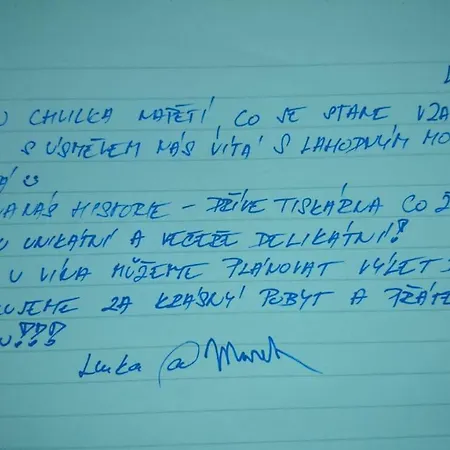 CHVILKA NAPĚTÍ, CO SE STANE VZA
S ÚSMĚVEM NÁS VÍTÁ S LAHODNÝM MO
Á ☺
NÁS HISTORIE - DŘÍVE TISKÁRNA CO Ž
U UNIKÁTNÍ A VEČEŘE DELIKÁTNÍ!
U VÍNA MŮŽEME PLÁNOVAT VÝLET
UJEME ZA KRÁSNÝ POBYT A PŘÁTE
U!!!
Lenka a Marek